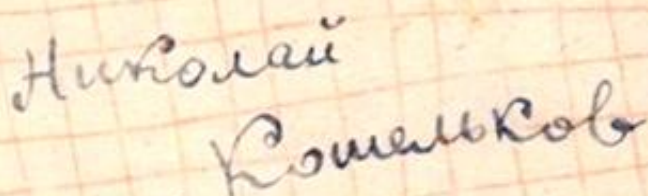 Николай
Кошельков